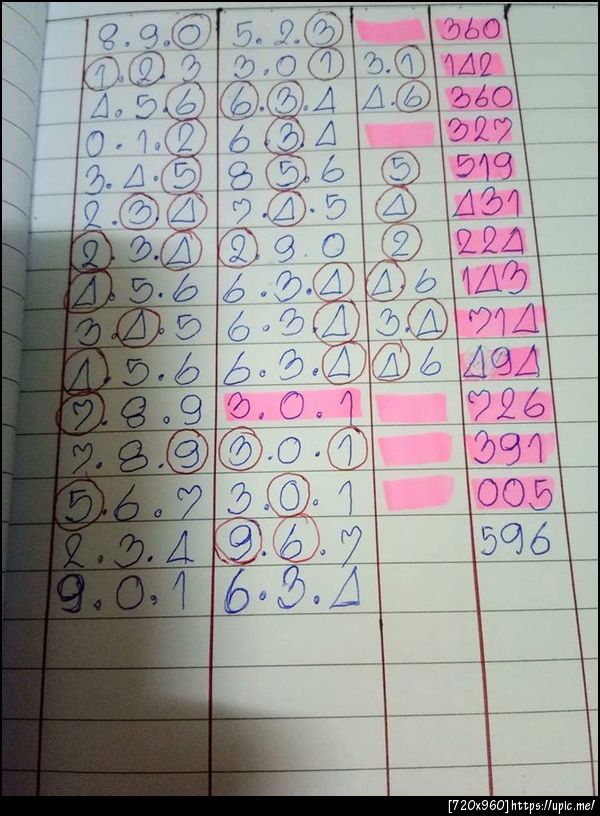 8.9.0 5.2.3 360
1.2.3 3.0.1 3.1 142
4.5.6 6.3.4 4.6 360
0.1.2 6.3.4 327
3.4.5 8.5.6 5 519
2.3.4 7.4.5 4 431
2.3.4 2.9.0 2 224
4.5.6 6.3.4 4.6 143
3.4.5 6.3.4 3.4 714
4.5.6 6.3.4 4 6 494
7.8.9 3.0.1 726
7.8.9 3.0.1 391
5.6.7 3.0.1 005
2.3.4 9.6.7 596
9.0.1 6.3.4
[720x960]https://upic.me/